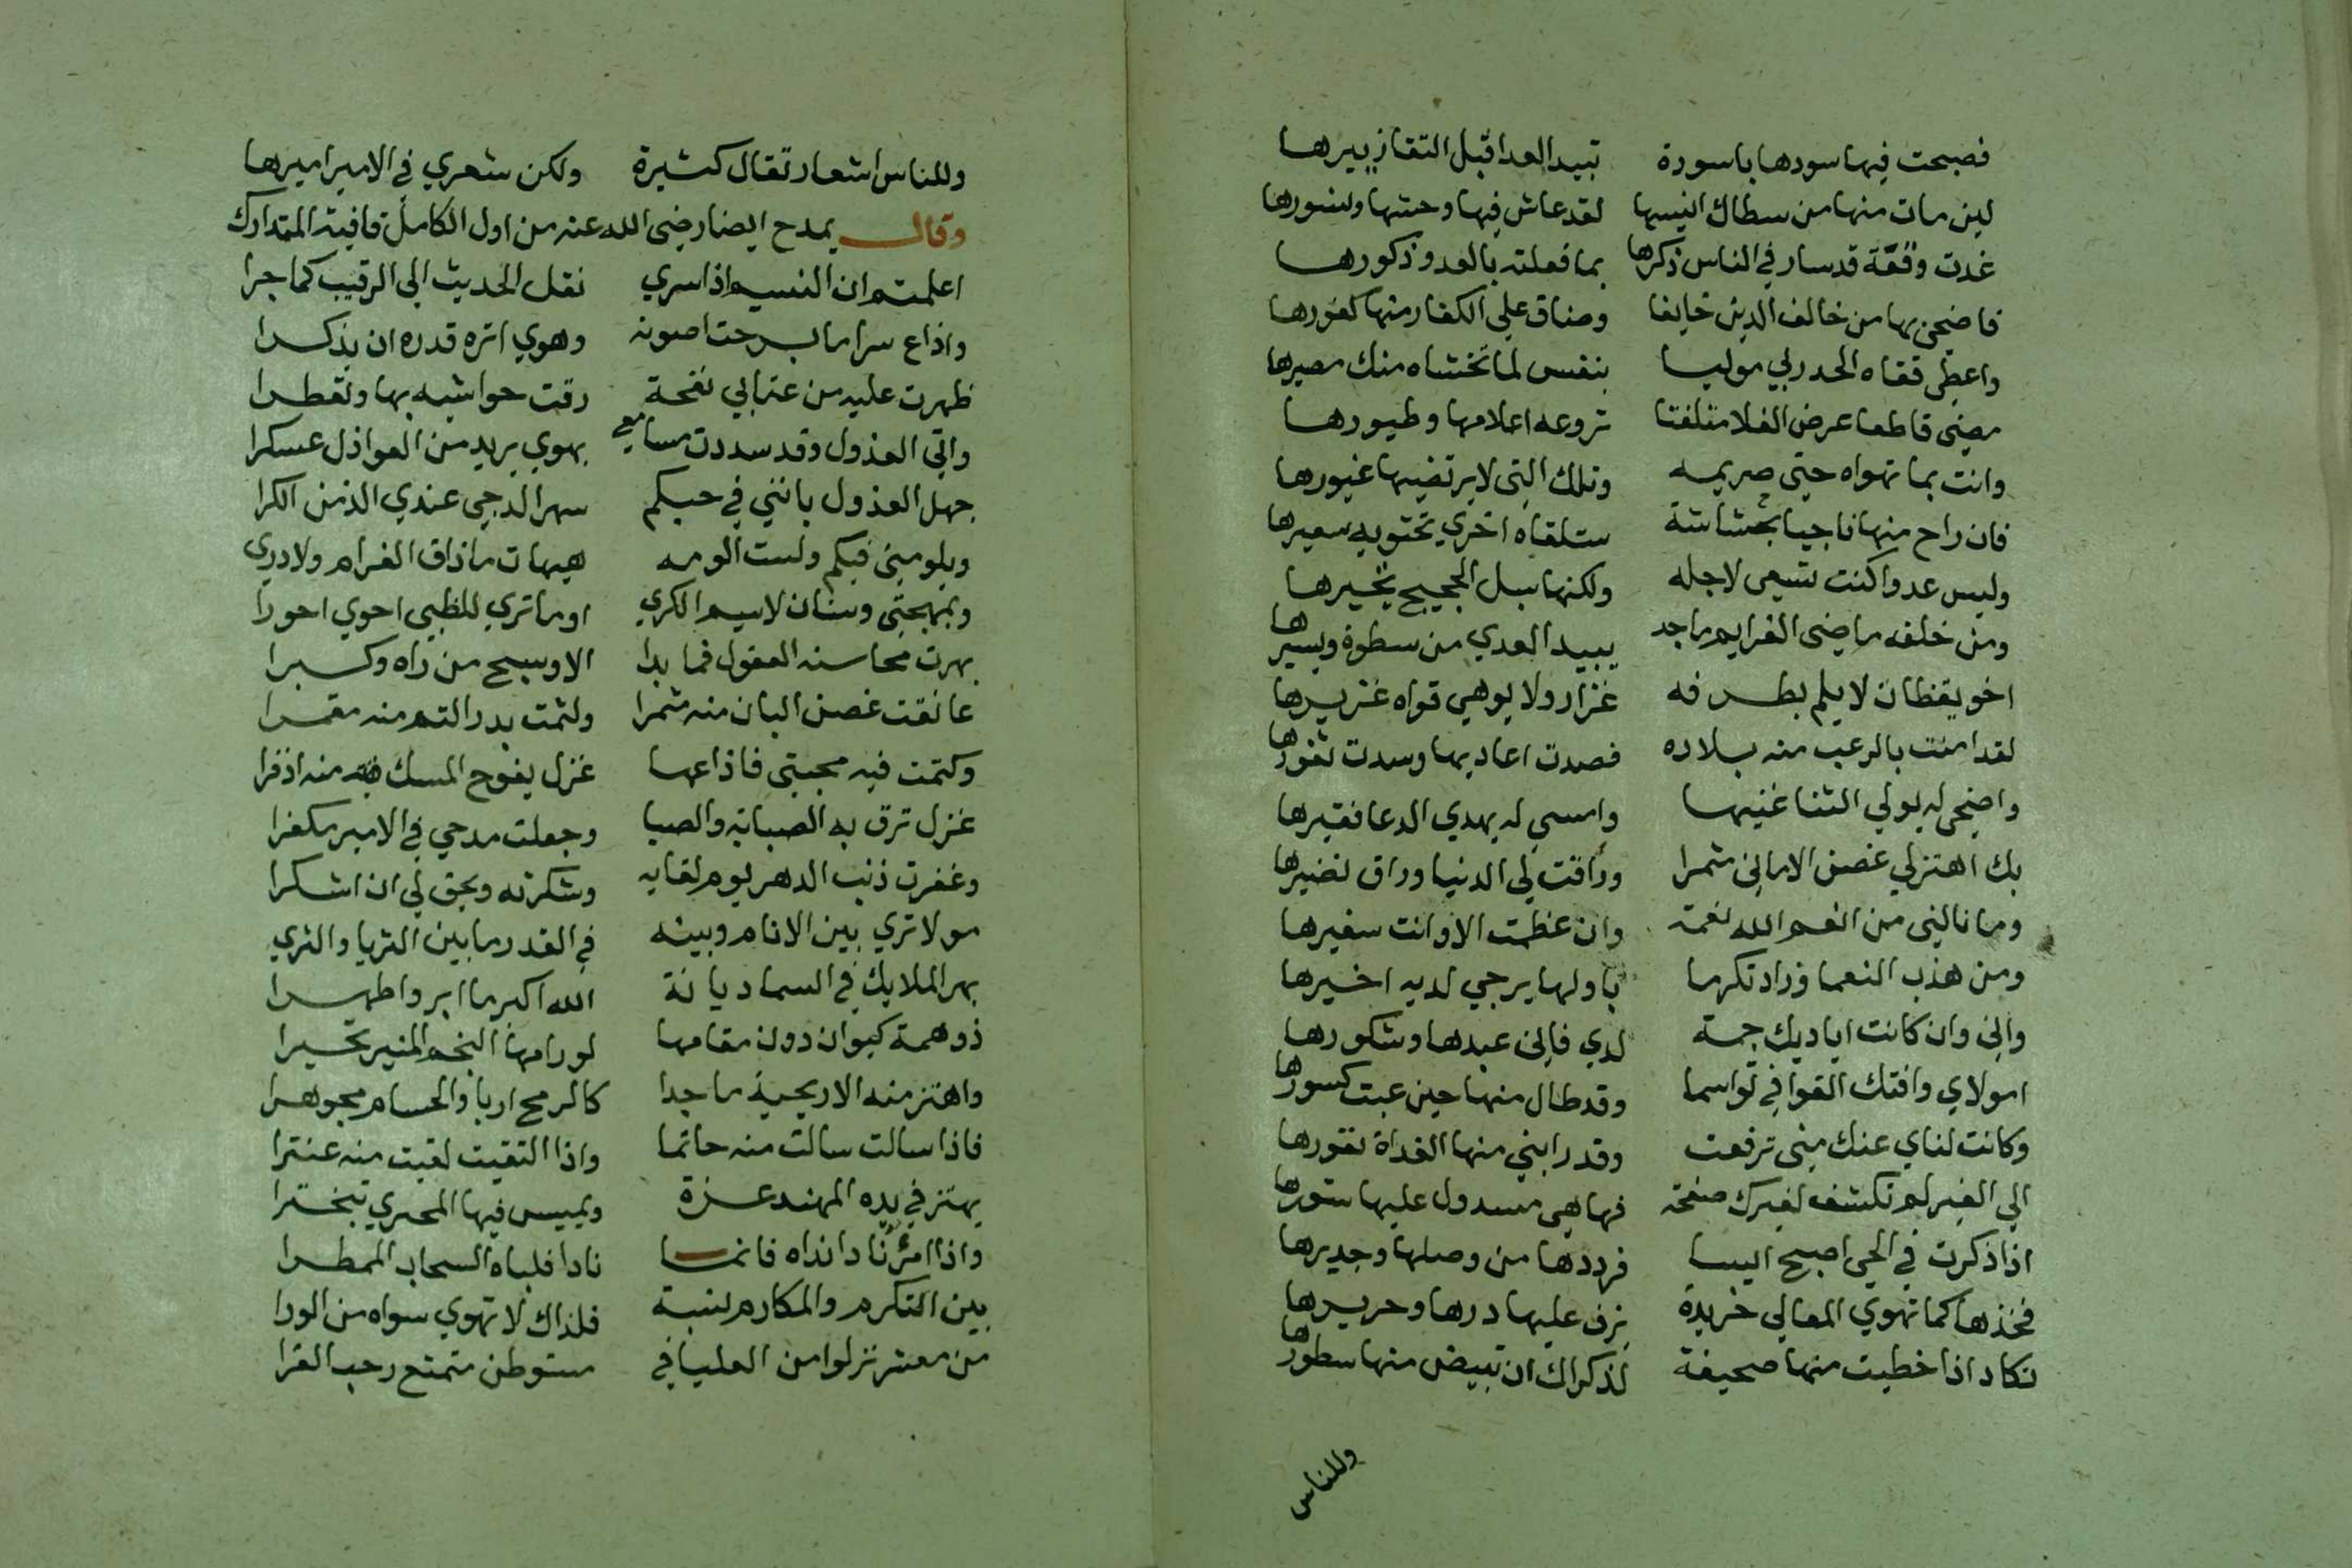 فصبحت فيها سودها باسودة تبيد العدا قبل التقا زييرها
لين مات منها من سطاك انيسها لقد عاش فيها وحشها ونسورها
غدت وقعة قد سار في الناس ذكرها بما فعلته بالعدو ذكورها
فاضحى بها من خالف الدين خايفا وضاق على الكفار منها كفورها
واعطى قفاه الحدربي موليا بنفس لما تخشاه منك مصيرها
مضى قاطعا عرض الفلا متلفتا تروعه اعلامها وطيورها
وانت بما تهواه حتى حريمه وتلك التي لا يرتضيها غيورها
فان راح منها ناجيا بحشاشة ستلقاه اخري تحتويه سعيرها
وليس عدوا كنت تسعى لاجله ولكنها سبل الحجيج تجيرها
ومن خلفه ماضى العزايم ماجد يبيد العدي من سطوة ويبيرها
اخو يقظان لا يلم بطرفه غزار ولا يوهي قواه غزيرها
لقد امنت بالرعب منه بلاده فصدت اعاديها وسدت ثغورها
واضحى له يولي الثنا غنيها وامسي له يهدي الدعا فقيرها
بك اهتز لي غصن الاماني مثمرا وراقت لي الدنيا وراق نضيرها
وما نالني من انعم الله نعمة وان عظمت الا وانت سفيرها
ومن هذب النعما وزاد تكرما باولها يرجي لديه اخيرها
واني وان كانت اياديك جمة لدي فاني عبدها وشكورها
امولاي وافتك القوافي تواسما وقد طال منها حين عبت كسورها
وكانت لناي عنك مني ترفعت وقد رابني منها الغداة نفورها
الي الغير لم تكشف لغيرك صفحة فها هي مسدول عليها ستورها
اذا ذكرت في الحي اصبح ايسا فرددها من وصلها وجديرها
فخذها كما تهوي المعالي خريدة يزف عليها درها وحريرها
تكاد اذا خطيت منها صحيفة لذكراك ان تبيض منها سطورها
وللناس
وللناس اشعار تقال كثيرة ولكن شعري في الامير اميرها
وقال يمدح ايضا رضى الله عنه من اول الكامل قافية المتدارك
اعلمتم ان النسيم اذا سري نقل الحديث الى الرقيب كما جرا
واذاع سرا ما برحت اصونه وهوي انزه قدره ان يذكرا
ظهرت عليه من عتابي نفحة رقت حواشيه بها وتعطرا
واتى العذول وقد سددت مسامعي بهوي يريد من العواذل عسكرا
جهل العذول بانني في حبكم سهر الدجى عندي الذ من الكرا
ويلومني فيكم ولست الومه هيهات ما ذاق الغرام ولا دري
وبمهجتي وسنان لا سيم الكري اوما تري للظبي احوي احورا
بهرت محاسنه العقول فما بدا الا وسبح من راه وكبرا
عانقت غصن البان منه مثمرا ولثمت بدر التم منه مقمرا
وكتمت فيه محبتي فاذاعها غزل يفوح المسك منه اذفرا
غزل ترق به الصبابة والصبا وجعلت مدحي في الامير مكفرا
وغفرت ذنب الدهر يوم لقايه وشكرته ويحق لي ان اشكرا
مولا تري بين الانام وبينه في القدر ما بين الثريا والثري
بهر الملايك في السما ديانة الله اكبر ما ابر واطهرا
ذو همة كيوان دون مقامها لو رامها النجم المنير تحيرا
واهتز منه الاريحية ماجدا كالرمح اربا والحسام مجوهرا
فاذا سالت سالت منه حاتما واذا التقيت لقيت منه عنترا
يهتز في يده المهند عزة ويميس فيها السمهري تبخترا
واذا امرؤ نادا نداه فانما نادا فلباه السحاب الممطرا
بين التكرم والمكارم نسبة فلذاك لا تهوي سواه من الورا
من معشر نزلوا من العليا في مستوطن متمتع رحب القرا